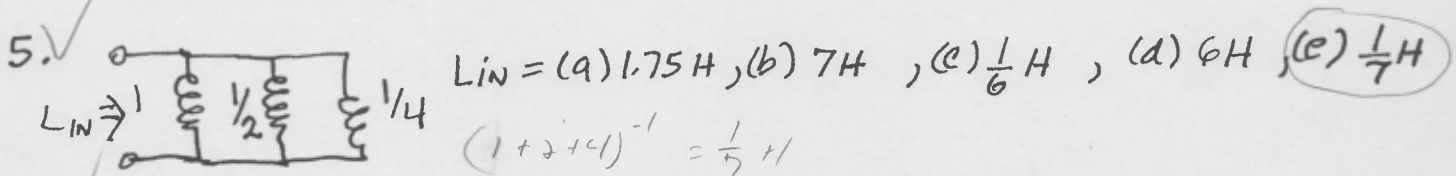 5. ✓
L_IN ⇒ 1 1/2 1/4
LiN = (a) 1.75 H, (b) 7H , (c) 1/6 H , (d) 6H , (e) 1/7 H
(1 + 2 + 4)^-1 = 1/7 H